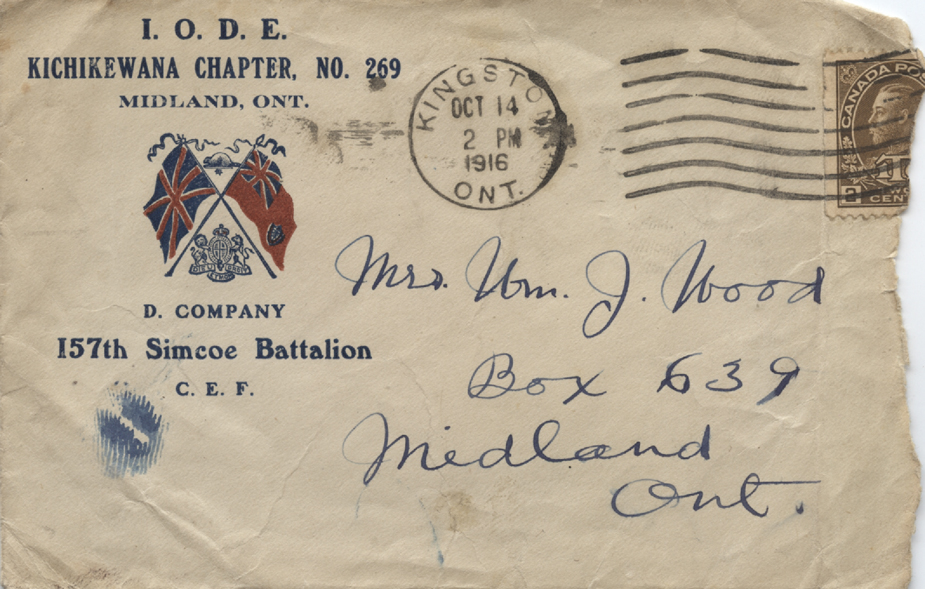 I. O. D. E.
KICHIKEWANA CHAPTER, NO. 269
MIDLAND, ONT.
D. COMPANY
157th Simcoe Battalion
C. E. F.
KINGSTON
OCT 14
2 PM
1916
ONT.
CANADA POS
2
CENT
Mrs. Wm. J. Wood
Box 639
Midland
Ont.